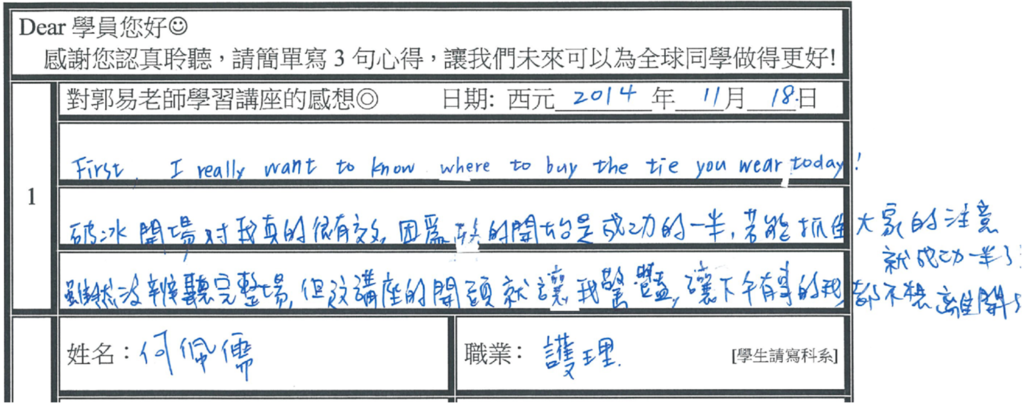 Dear 學員您好☺
感謝您認真聆聽，請簡單寫 3 句心得，讓我們未來可以為全球同學做得更好!
對郭易老師學習講座的感想◎ 日期: 西元 2014 年 11 月 18 日
1
First, I really want to know where to buy the tie you wear today!
破冰開場對我真的很有效,因為好的開始是成功的一半,若能抓住大家的注意
就成功一半了
雖然沒辦聽完整場,但這講座的開頭就讓我驚豔,讓下午有事的我都不想離開了
姓名：何佩儒 職業： 護理 [學生請寫科系]